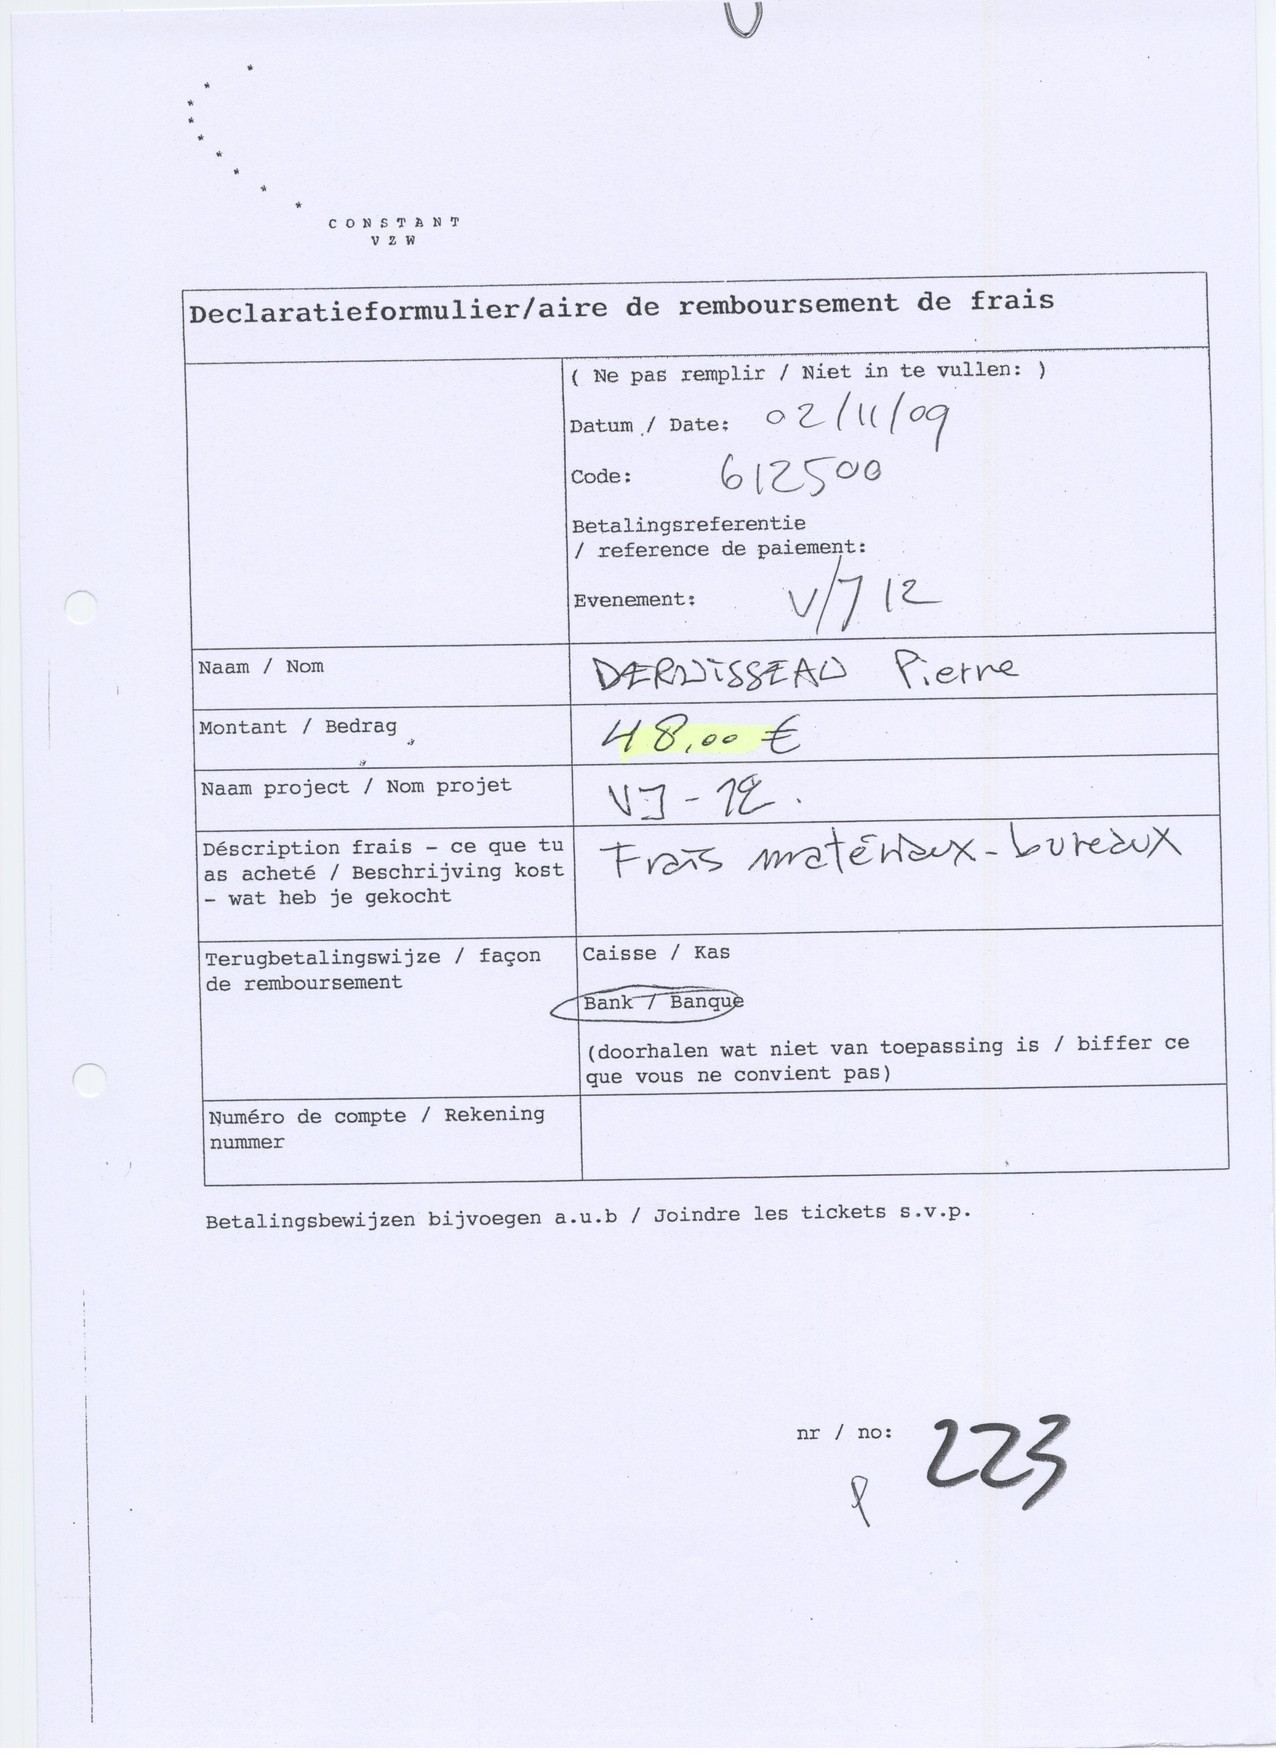 CONSTANT
VZW
Declaratieformulier/aire de remboursement de frais
( Ne pas remplir / Niet in te vullen: )
Datum / Date: 02/11/09
Code: 612500
Betalingsreferentie
/ reference de paiement:
Evenement: V/J 12
Naam / Nom
Pierre
Montant / Bedrag
48,00 €
Naam project / Nom projet
VJ-12.
Déscription frais – ce que tu
as acheté / Beschrijving kost
– wat heb je gekocht
Frais matériaux-bureaux
Terugbetalingswijze / façon
de remboursement
Caisse / Kas
Bank / Banque
(doorhalen wat niet van toepassing is / biffer ce
que vous ne convient pas)
Numéro de compte / Rekening
nummer
Betalingsbewijzen bijvoegen a.u.b / Joindre les tickets s.v.p.
nr / no: 223